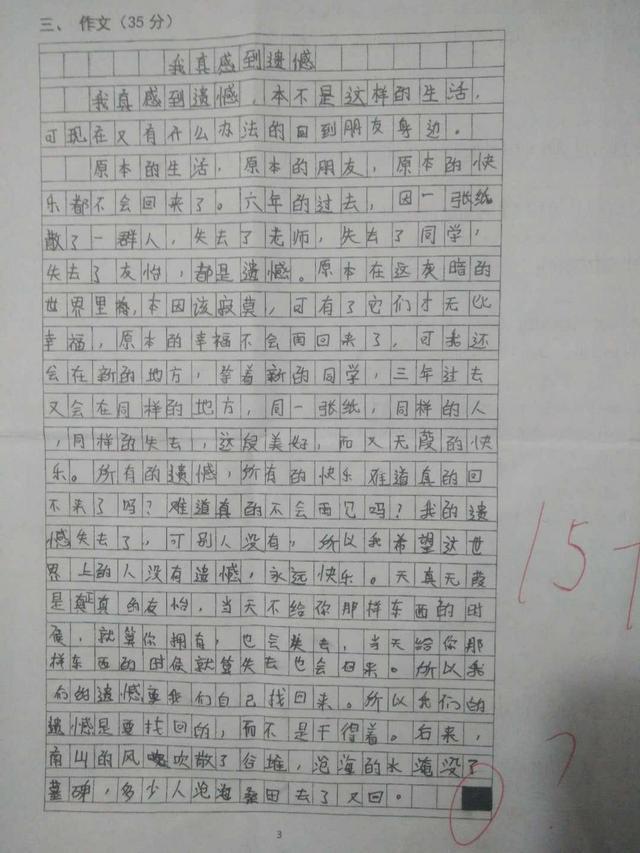 三、作文（35分）
我真感到遗憾
我真感到遗憾，本不是这样的生活，
可现在又有什么办法的回到朋友身边。
原本的生活，原本的朋友，原本的快
乐都不会回来了。六年的过去，因一张纸
散了一群人，失去了老师，失去了同学，
失去了友怡，都是遗憾。原本在这灰暗的
世界里，本因该寂莫，可有了它们才无比
幸福，原本的幸福不会再回来了，可我还
会在新的地方，等着新的同学，三年过去
又会在同样的地方，同一张纸，同样的人
，同样的失去，这段美好，而又无葭的快
乐。所有的遗憾，所有的快乐难道真的回
不来了吗？难道真的不会再见吗？我的遗
憾失去了，可别人没有，所以我希望这世
界上的人没有遗憾，永远快乐。天真无葭
是真正真的友怡，当天不给你那样东西的时
候，就算你拥有，也会失去，当天给你那
样东西的时候就算失去也会回来。所以我
们的遗憾要我们自己找回来。所以我们的
遗憾是要找回的，而不是干得着。右来，
南山的风吹散了谷堆，沧海的水淹没了
墓碑，多少人沧海桑田去了又回。
157
3